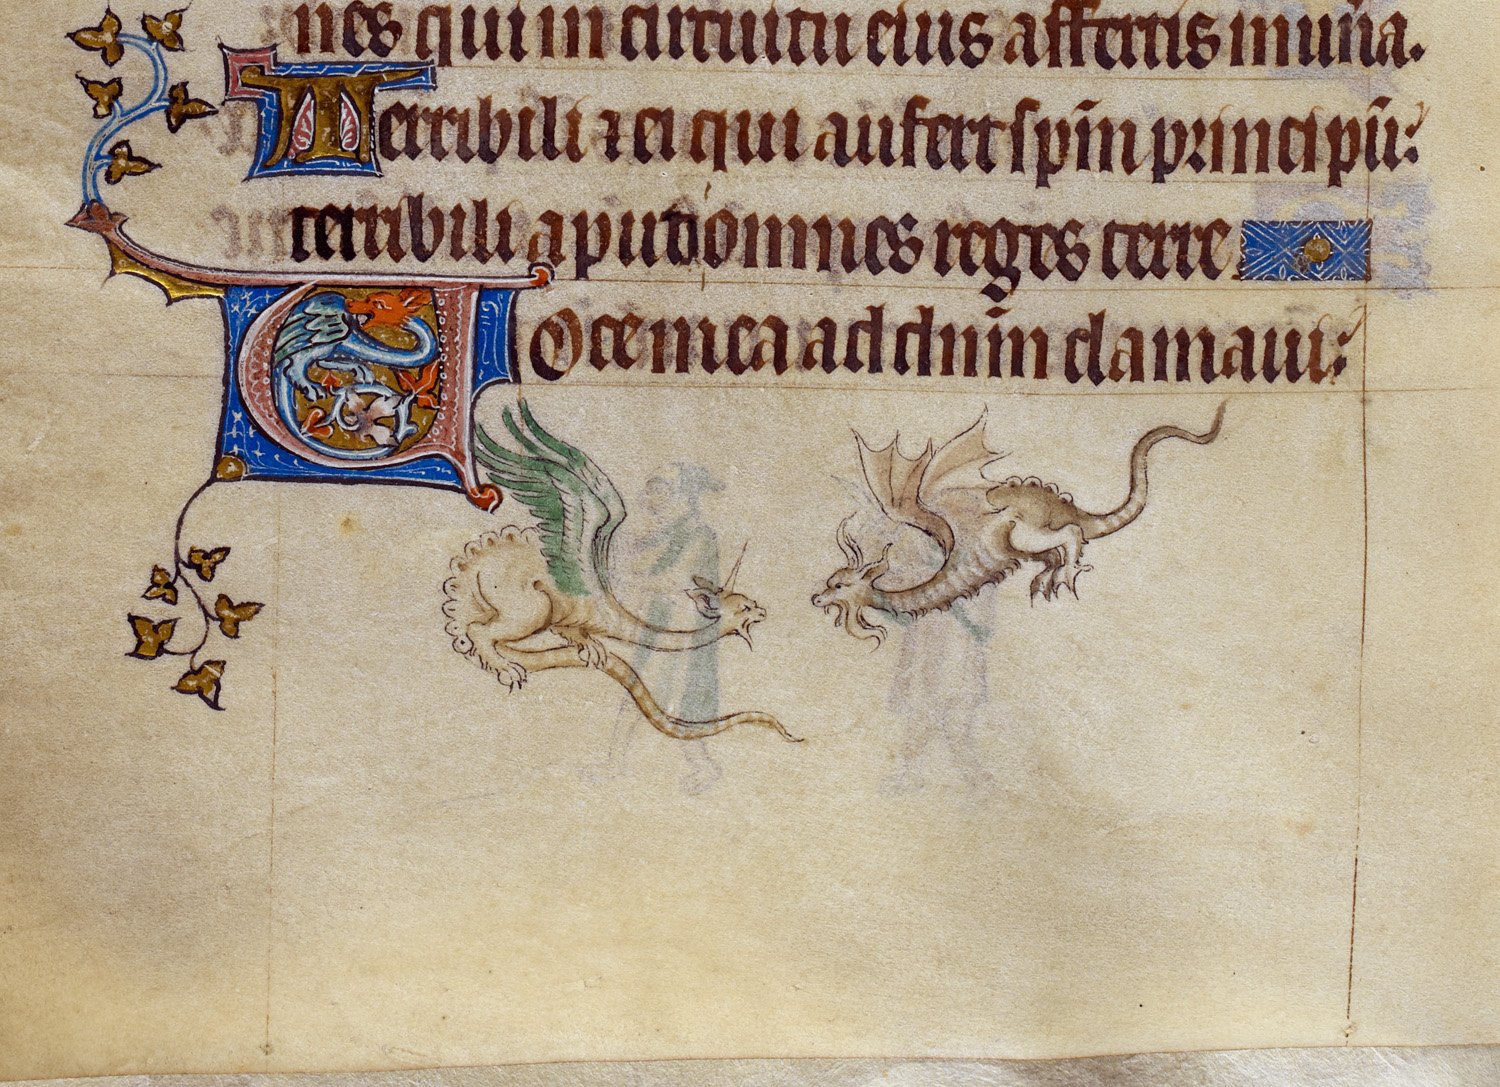 nes qui in circuitu eius affertis mun̄a.
Terribili ⁊ ei qui aufert sp̄m principū:
terribili apud omnes reges terre
Voce mea ad dn̄m clamaui: